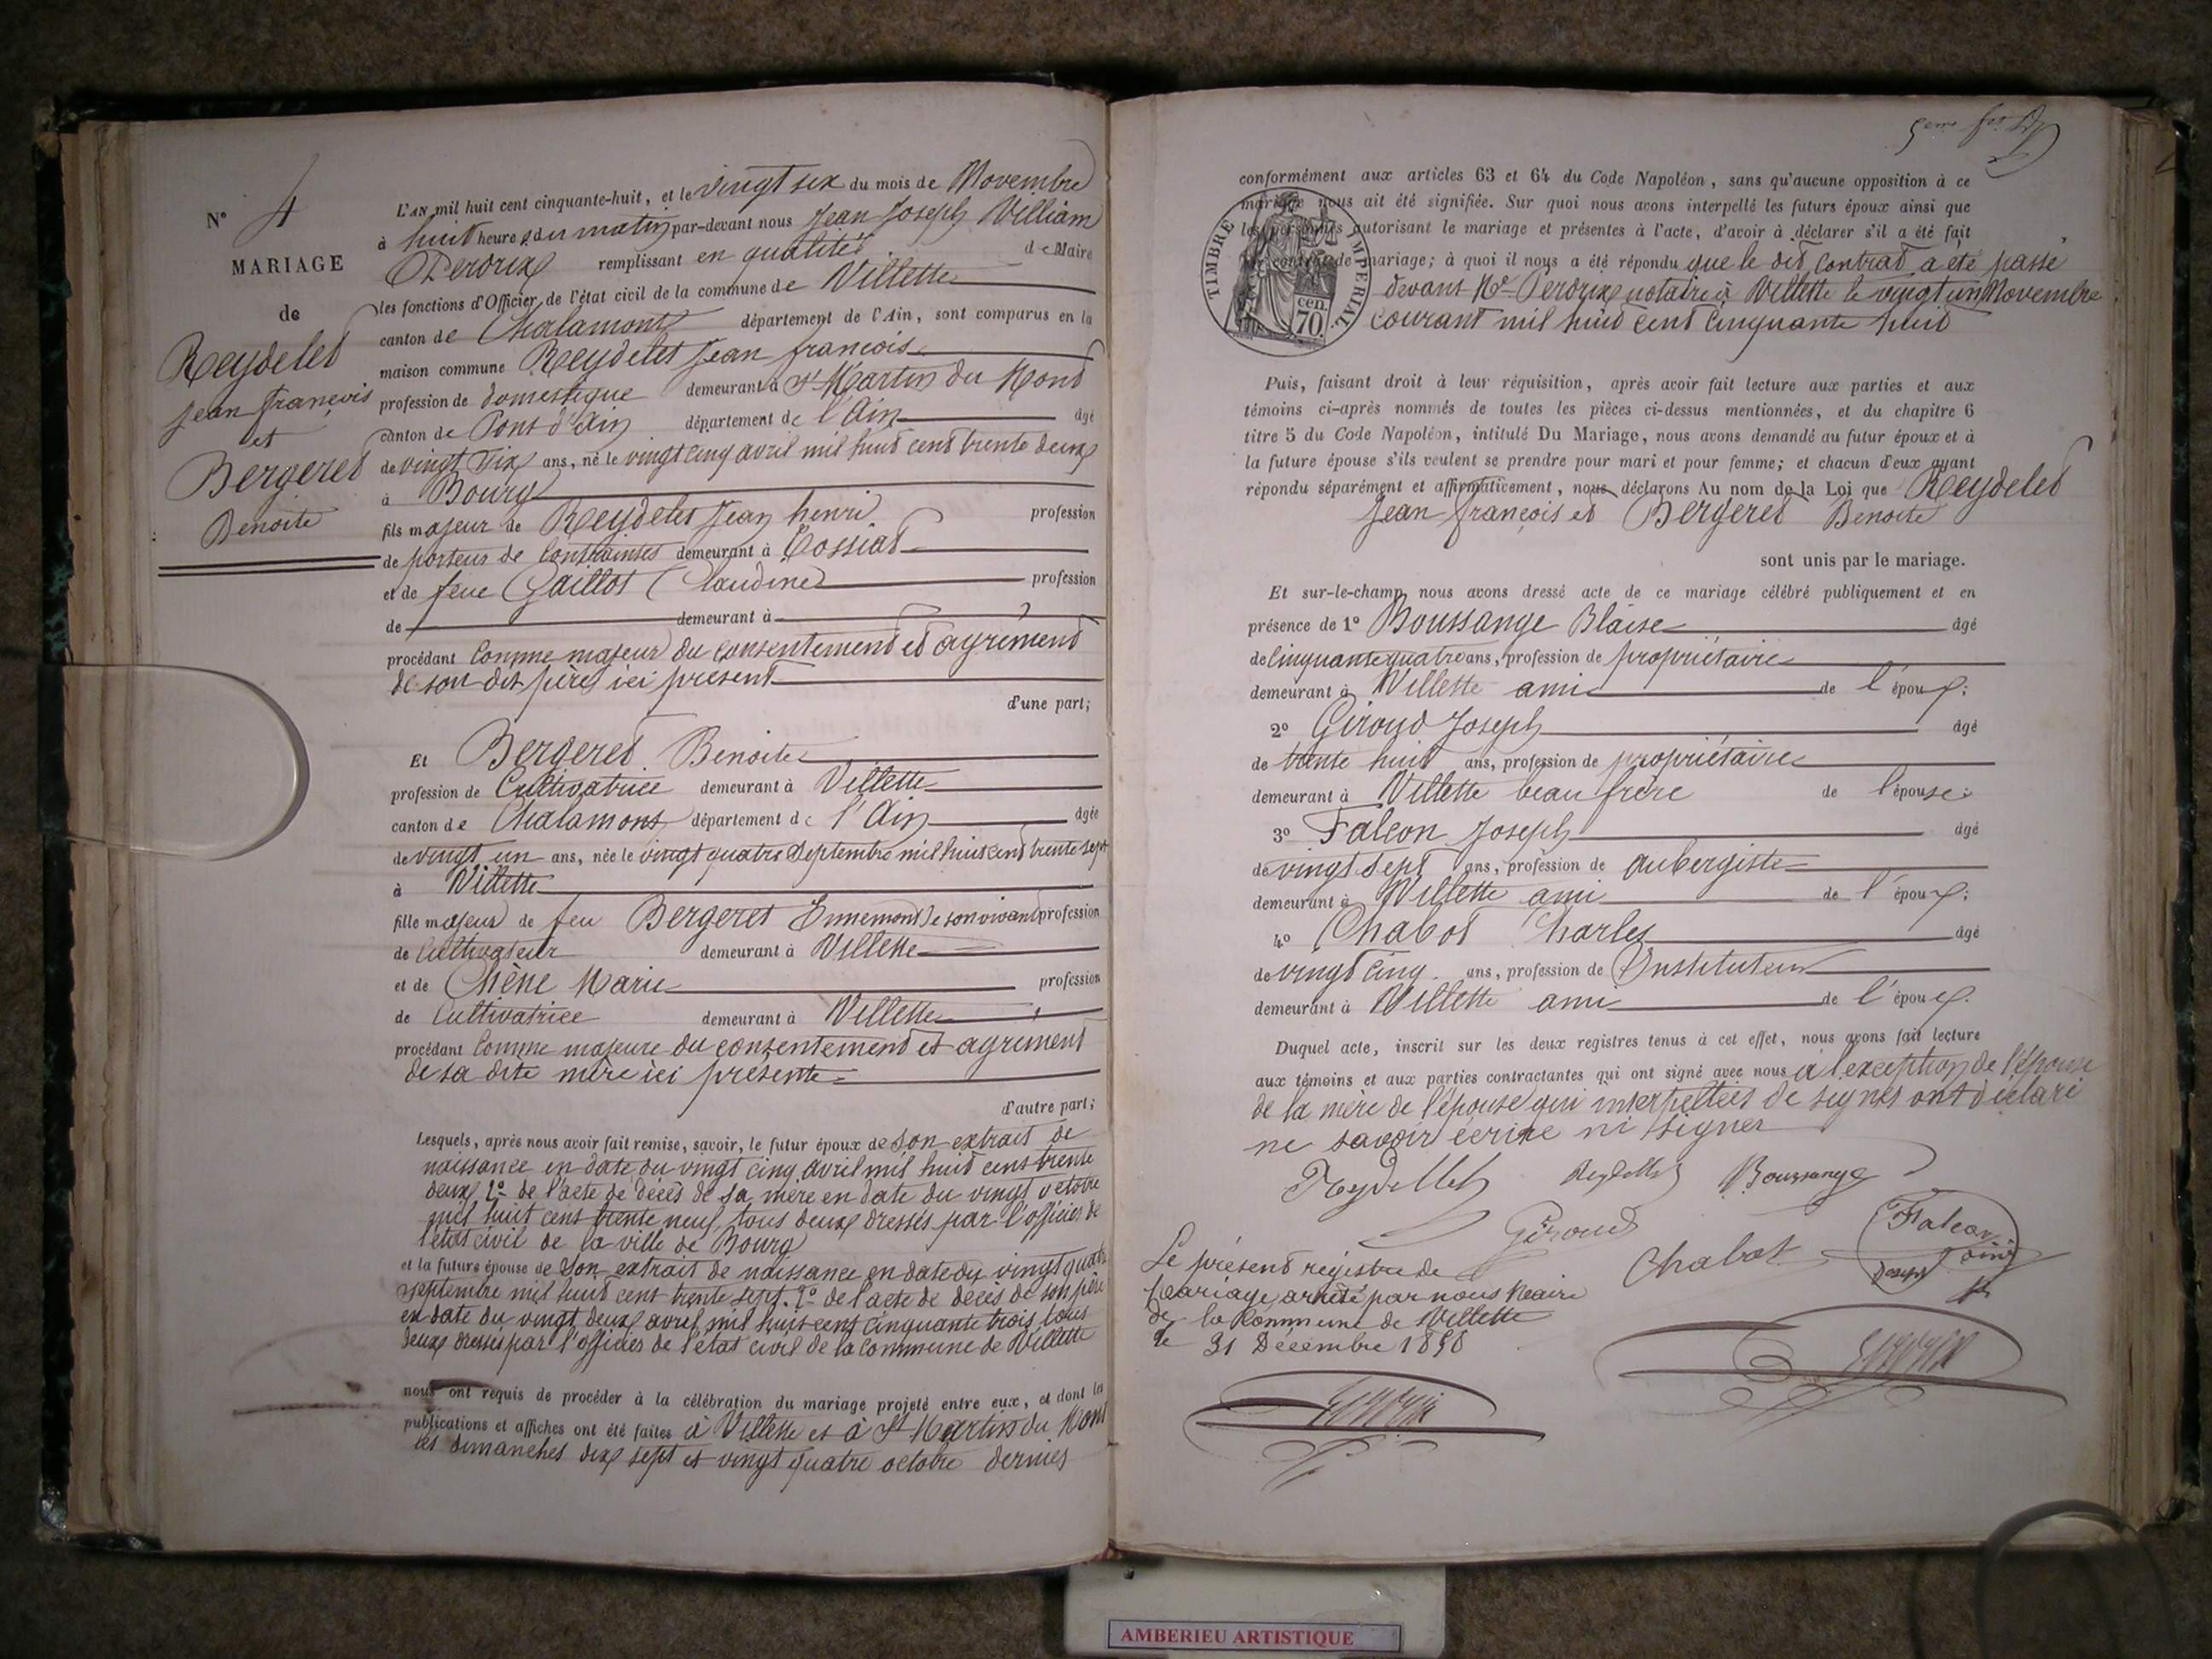 N° 4
MARIAGE
de
Reydelet
Jean françois
et
Bergeret
Benoite
L'AN mil huit cent cinquante-huit, et le vingt six du mois de Novembre
à huit heures du matin par-devant nous Jean Joseph William
Perdrix remplissant en qualité de Maire
les fonctions d'Officier de l'état civil de la commune de Villette
canton de Chalamont département de l'Ain, sont comparus en la
maison commune Reydelet Jean françois
profession de domestique demeurant à St Martin du Mont
canton de Pont d'Ain département de l'Ain âgé
de vingt six ans, né le vingt cinq avril mil huit cent trente deux
à Bourg
fils majeur de Reydelet Jean henri profession
de porteur de Contraintes demeurant à Tossiat
et de feue Gaillot Claudine profession
de demeurant à
procédant Comme majeur du consentement et agrément
de son dit père ici présent
d'une part;
Et Bergeret Benoite
profession de Cultivatrice demeurant à Villette
canton de Chalamont département de l'Ain âgée
de vingt un ans, née le vingt quatre Septembre mil huit cent trente sept
à Villette
fille majeure de feu Bergeret Ennemond de son vivant profession
de Cultivateur demeurant à Villette
et de Chêne Marie profession
de Cultivatrice demeurant à Villette
procédant Comme majeure du consentement et agrément
de sa dite mère ici présente
d'autre part;
Lesquels, après nous avoir fait remise, savoir, le futur époux de son extrait de
naissance en date du vingt cinq avril mil huit cent trente
deux 2° de l'acte de décès de sa mère en date du vingt octobre
mil huit cent trente neuf, tous deux dressés par l'officier de
l'état civil de la ville de Bourg
et la future épouse de Son extrait de naissance en date du vingt quatre
septembre mil huit cent trente sept. 2° de l'acte de décès de son père
en date du vingt deux avril mil huit cent cinquante trois tous
deux dressés par l'officier de l'état civil de la Commune de Villette
nous ont requis de procéder à la célébration du mariage projeté entre eux, et dont les
publications et affiches ont été faites à Villette et à St Martin du Mont
les dimanches dix sept et vingt quatre octobre dernier
5eme
conformément aux articles 63 et 64 du Code Napoléon, sans qu'aucune opposition à ce
mariage nous ait été signifiée. Sur quoi nous avons interpellé les futurs époux ainsi que
les personnes autorisant le mariage et présentes à l'acte, d'avoir à déclarer s'il a été fait
un contrat de mariage; à quoi il nous a été répondu que le dit Contrat a été passé
devant Me Perdrix notaire à Villette le vingt un Novembre
courant mil huit cent Cinquante huit
TIMBRE IMPERIAL
70 cen.
Puis, faisant droit à leur réquisition, après avoir fait lecture aux parties et aux
témoins ci-après nommés de toutes les pièces ci-dessus mentionnées, et du chapitre 6
titre 5 du Code Napoléon, intitulé Du Mariage, nous avons demandé au futur époux et à
la future épouse s'ils veulent se prendre pour mari et pour femme; et chacun d'eux ayant
répondu séparément et affirmativement, nous déclarons Au nom de la Loi que Reydelet
Jean françois et Bergeret Benoite
sont unis par le mariage.
Et sur-le-champ nous avons dressé acte de ce mariage célébré publiquement et en
présence de 1° Boussange Blaise âgé
de Cinquante quatre ans, profession de propriétaire
demeurant à Villette ami de l'époux;
2° Giroud Joseph âgé
de trente huit ans, profession de propriétaire
demeurant à Villette beau frère de l'épouse;
3° Falcon Joseph âgé
de vingt sept ans, profession de aubergiste
demeurant à Villette ami de l'époux;
4° Chabot Charles âgé
de vingt cinq ans, profession de Instituteur
demeurant à Villette ami de l'époux.
Duquel acte, inscrit sur les deux registres tenus à cet effet, nous avons fait lecture
aux témoins et aux parties contractantes qui ont signé avec nous à l'exception de l'épouse
de la mère de l'épouse qui interpellées de signer ont déclaré
ne savoir écrire ni signer
Reydellet Reydellet Boussange
Giroud Chabot Falcon
Joseph
Le présent registre de
Mariage, arrêté par nous Maire
de la Commune de Villette
le 31 Décembre 1858
AMBERIEU ARTISTIQUE